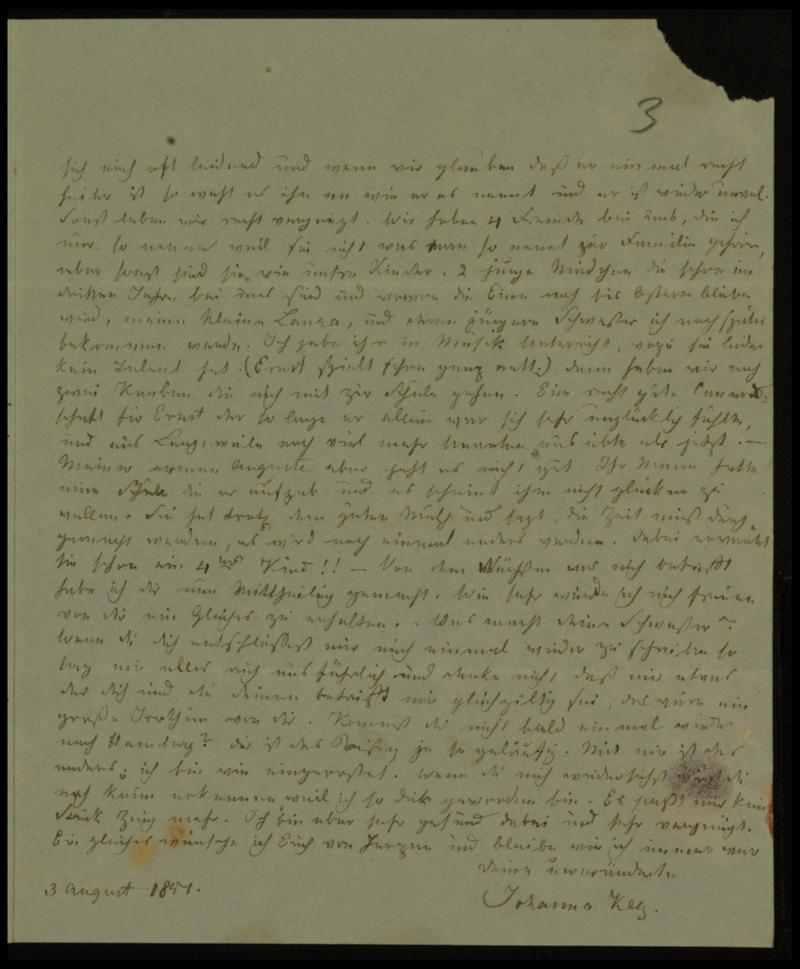 3
sich noch oft leidend und wenn wir glauben daß er einmal recht
heiter ist so weht es ihn an wie er es nennt und er ist wieder unwol.
Sonst leben wir recht vergnügt. Wir haben 4 Fremde bei uns, die ich
nur so nenne weil sie nicht was man so nennt zur Familie gehören,
aber sonst sind sie wie unsre Kinder. 2 junge Mädchen die schon im
dritten Jahre bei uns sind und wovon die Eine noch bis Ostern bleiben
wird, meine kleine Laura, und deren jüngere Schwester ich noch später
bekommen werde. Ich gebe ihr in Musik Unterricht, wozu sie leider
kein Talent hat. (Ernst spielt schon ganz nett.) dann haben wir noch
zwei Knaben die auch mit zur Schule gehen. Eine recht gute Camerad-
schaft für Ernst der so lange er allein war sich sehr unglücklich fühlte,
und aus Langeweile noch viel mehr Unarten ausübte als jetzt. —
Meiner armen Auguste aber geht es nicht gut. Ihr Mann hatte
eine Schule die er aufgab und es scheint ihm nicht glücken zu
wollen. Sie hat trotz dem guten Muth und sagt, die Zeit muß durch-
gemacht werden, es wird noch einmal anders werden. dabei erwartet
sie schon ein 4tes Kind!! — Von dem Nächsten was mich betrifft
habe ich dir nun Mittheilung gemacht. Wie sehr würde ich mich freuen
von dir ein Gleiches zu erhalten. Was macht deine Schwester?
Wenn du dich entschlößest mir noch einmal wieder zu schreiben so
sag mir alles recht ausführlich und denke nicht, daß mir etwas
das dich und die deinen betrifft mir gleichgiltig sei, das wäre ein
großer Irrthum von dir. Kommst du nicht bald einmal wieder
nach Hamburg? dir ist das Reisen ja so geläufig. Mit mir ist das
anders; ich bin wie eingerostet. Wenn du mich wiedersiehst wirst du
mich kaum erkennen weil ich so dick geworden bin. Es paßt mir kein
Stück Zeug mehr. Ich bin aber sehr gesund dabei und sehr vergnügt.
Ein gleiches wünsche ich Euch von Herzen und bleibe wie ich immer war
deine unveränderte
3 August 1851.
Johanna